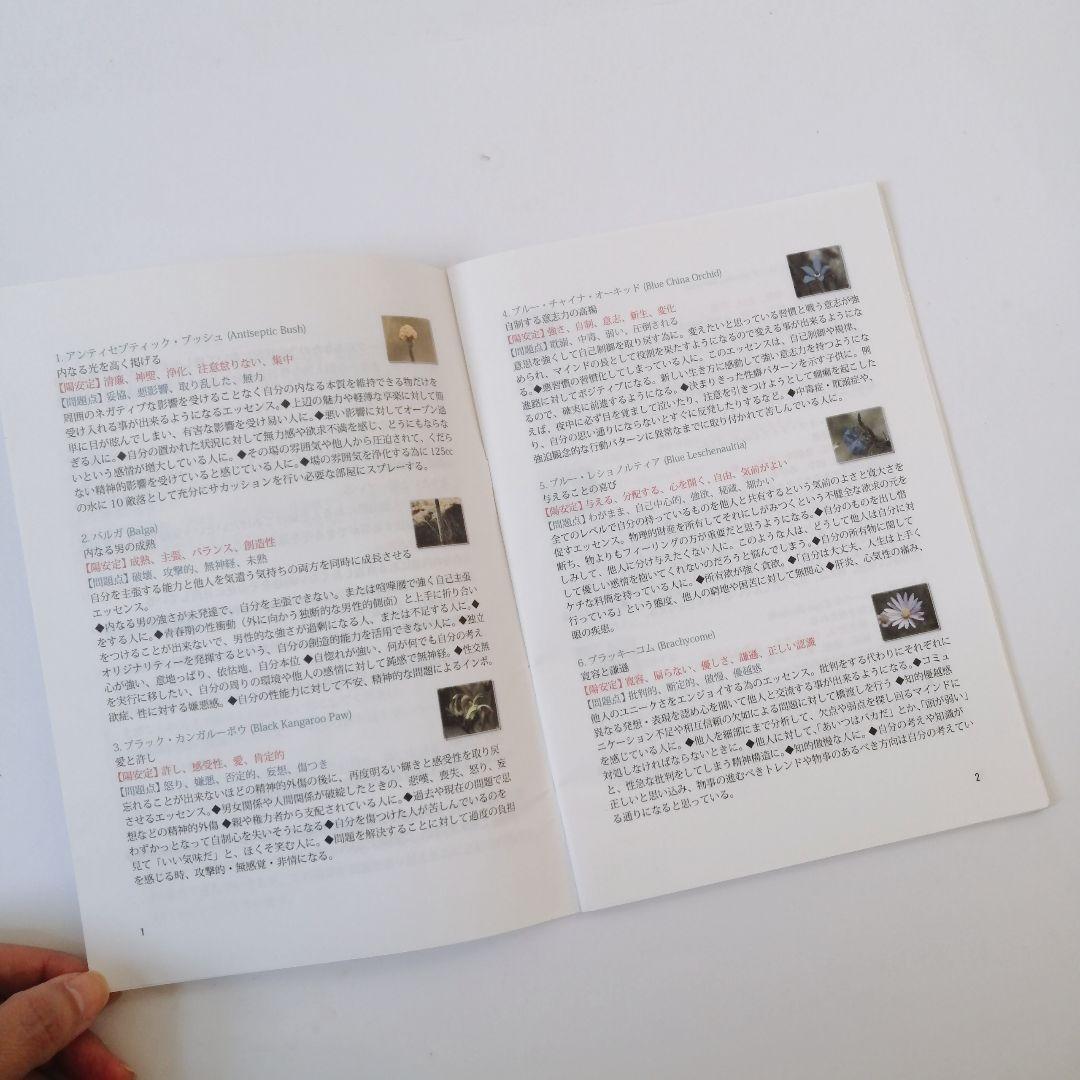 1. アンティセプティック・ブッシュ (Antiseptic Bush)
内なる光を高く掲げる
【陽安定】清廉、神聖、浄化、注意怠りない、集中
【問題点】妥協、悪影響、取り乱した、無力
周囲のネガティブな影響を受けることなく自分の内なる本質を維持できる物だけを
受け入れる事が出来るようになるエッセンス。◆上辺の魅力や軽薄な享楽に対して簡
単に目が眩んでしまい、有害な影響を受け易い人に。◆悪い影響に対してオープン過
ぎる人に。◆自分の置かれた状況に対して無力感や欲求不満を感じ、どうにもならな
いという感情が増大している人に。◆その場の雰囲気や他人から圧迫されて、くだら
ない精神的影響を受けていると感じている人に。◆場の雰囲気を浄化する為に 125cc
の水に 10 敵落として充分にサカッションを行い必要な部屋にスプレーする。
2. バルガ (Balga)
内なる男の成熟
【陽安定】成熟、主張、バランス、創造性
【問題点】破壊、攻撃的、無神経、未熟
自分を主張する能力と他人を気遣う気持ちの両方を同時に成長させる
エッセンス。
◆内なる男の強さが未発達で、自分を主張できない。または喧嘩腰で強く自己主張
をする人に。◆青春期の性衝動（外に向かう独断的な男性的側面）と上手に折り合い
をつけることが出来ないで、男性的な強さが過剰になる人、または不足する人に。◆
オリジナリティーを発揮するという、自分の創造的能力を活用できない人に。◆独立
心が強い、意地っぱり、依怙地、自分本位 ◆自惚れが強い、何が何でも自分の考え
を実行に移したい、自分の周りの環境や他人の感情に対して鈍感で無神経。◆性交無
欲症、性に対する嫌悪感。◆自分の性能力に対して不安、精神的な問題によるインポ。
3. ブラック・カンガルーポウ (Black Kangaroo Paw)
愛と許し
【陽安定】許し、感受性、愛、肯定的
【問題点】怒り、嫌悪、否定的、妄想、傷つき
忘れることが出来ないほどの精神的外傷の後に、再度明るい輝きと感受性を取り戻
させるエッセンス。◆男女関係や人間関係が破綻したときの、悲嘆、喪失、怒り、妄
想などの精神的外傷 ◆親や権力者から支配されている人に。◆過去や現在の問題で思
わずかっとなって自制心を失いそうになる◆自分を傷つけた人が苦しんでいるのを
見て「いい気味だ」と、ほくそ笑む人に。◆問題を解決することに対して過度の負担
を感じる時、攻撃的・無感覚・非情になる。
1
4. ブルー・チャイナ・オーキッド (Blue China Orchid)
自制する意志力の高揚
【陽安定】強さ、自制、意志、新生、変化
【問題点】耽溺、中毒、弱い、圧倒される
意思を強くして自己制御を取り戻す為に。変えたいと思っている習慣と戦う意志が強
められ、マインドの長として役割を果たすようになるので変える事が出来るようにな
る。◆悪習慣の習慣化してしまっている人に。このエッセンスは、自己制御や規律、
進路に対してポジティブになる。新しい生き方に感動して強い意志力を持つようにな
るので、確実に前進するようになる。◆決まりきった性癖パターンを示す子供に。例
えば、夜中に必ず目を覚まして泣いたり、注意を引きつけようとして癇癪を起こした
り、自分の思い通りにならないとすぐに反発したりするなど。◆中毒症・耽溺症や、
強迫観念的な行動パターンに異常なまでに取り付かれて苦しんでいる人に。
5. ブルー・レショノルティア (Blue Leschenaultia)
与えることの喜び
【陽安定】与える、分配する、心を開く、自由、気前がよい
【問題点】わがまま、自己中心的、強欲、秘蔵、細かい
全てのレベルで自分の持っているものを他人と共有するという気前のよさと寛大さを
促すエッセンス。物理的財産を所有してそれにしがみつくという不健全な欲求の元を
断ち、物よりもフィーリングの方が重要だと思うようになる。◆自分のものを出し惜
しみして、他人に分け与えたくない人に。このような人は、どうして他人は自分に対
して優しい感情を抱いてくれないのだろうと悩んでしまう。◆自分の所有物に関して
ケチな料簡を持っている人に。◆所有欲が強く貪欲。◆「自分は大丈夫、人生は上手く
行っている」という態度、他人の窮地や困苦に対して無関心 ◆肝炎、心気性の痛み、
眼の疾患。
6. ブラッキーコム (Brachycome)
寛容と謙遜
【陽安定】寛容、偏らない、優しさ、謙遜、正しい認識
【問題点】批判的、断定的、傲慢、優越感
他人のユニークさをエンジョイする為のエッセンス。批判をする代わりにそれぞれに
異なる発想・表現を認め心を開いて他人と交流する事が出来るようになる。◆コミュ
ニケーション不足や相互信頼の欠如による問題に対して橋渡しを行う ◆知的優越感
を感じている人に。◆他人を細部にまで分析して、欠点や弱点を探し回るマインドに
対処しなければならないときに。◆他人に対して、「あいつはバカだ」とか、「頭が弱い」
と、性急な批判をしてしまう精神構造に。◆知的傲慢な人に。◆自分の考えや知識が
正しいと思い込み、物事の進むべきトレンドや物事のあるべき方向は自分の考えてい
る通りになると思っている。
2